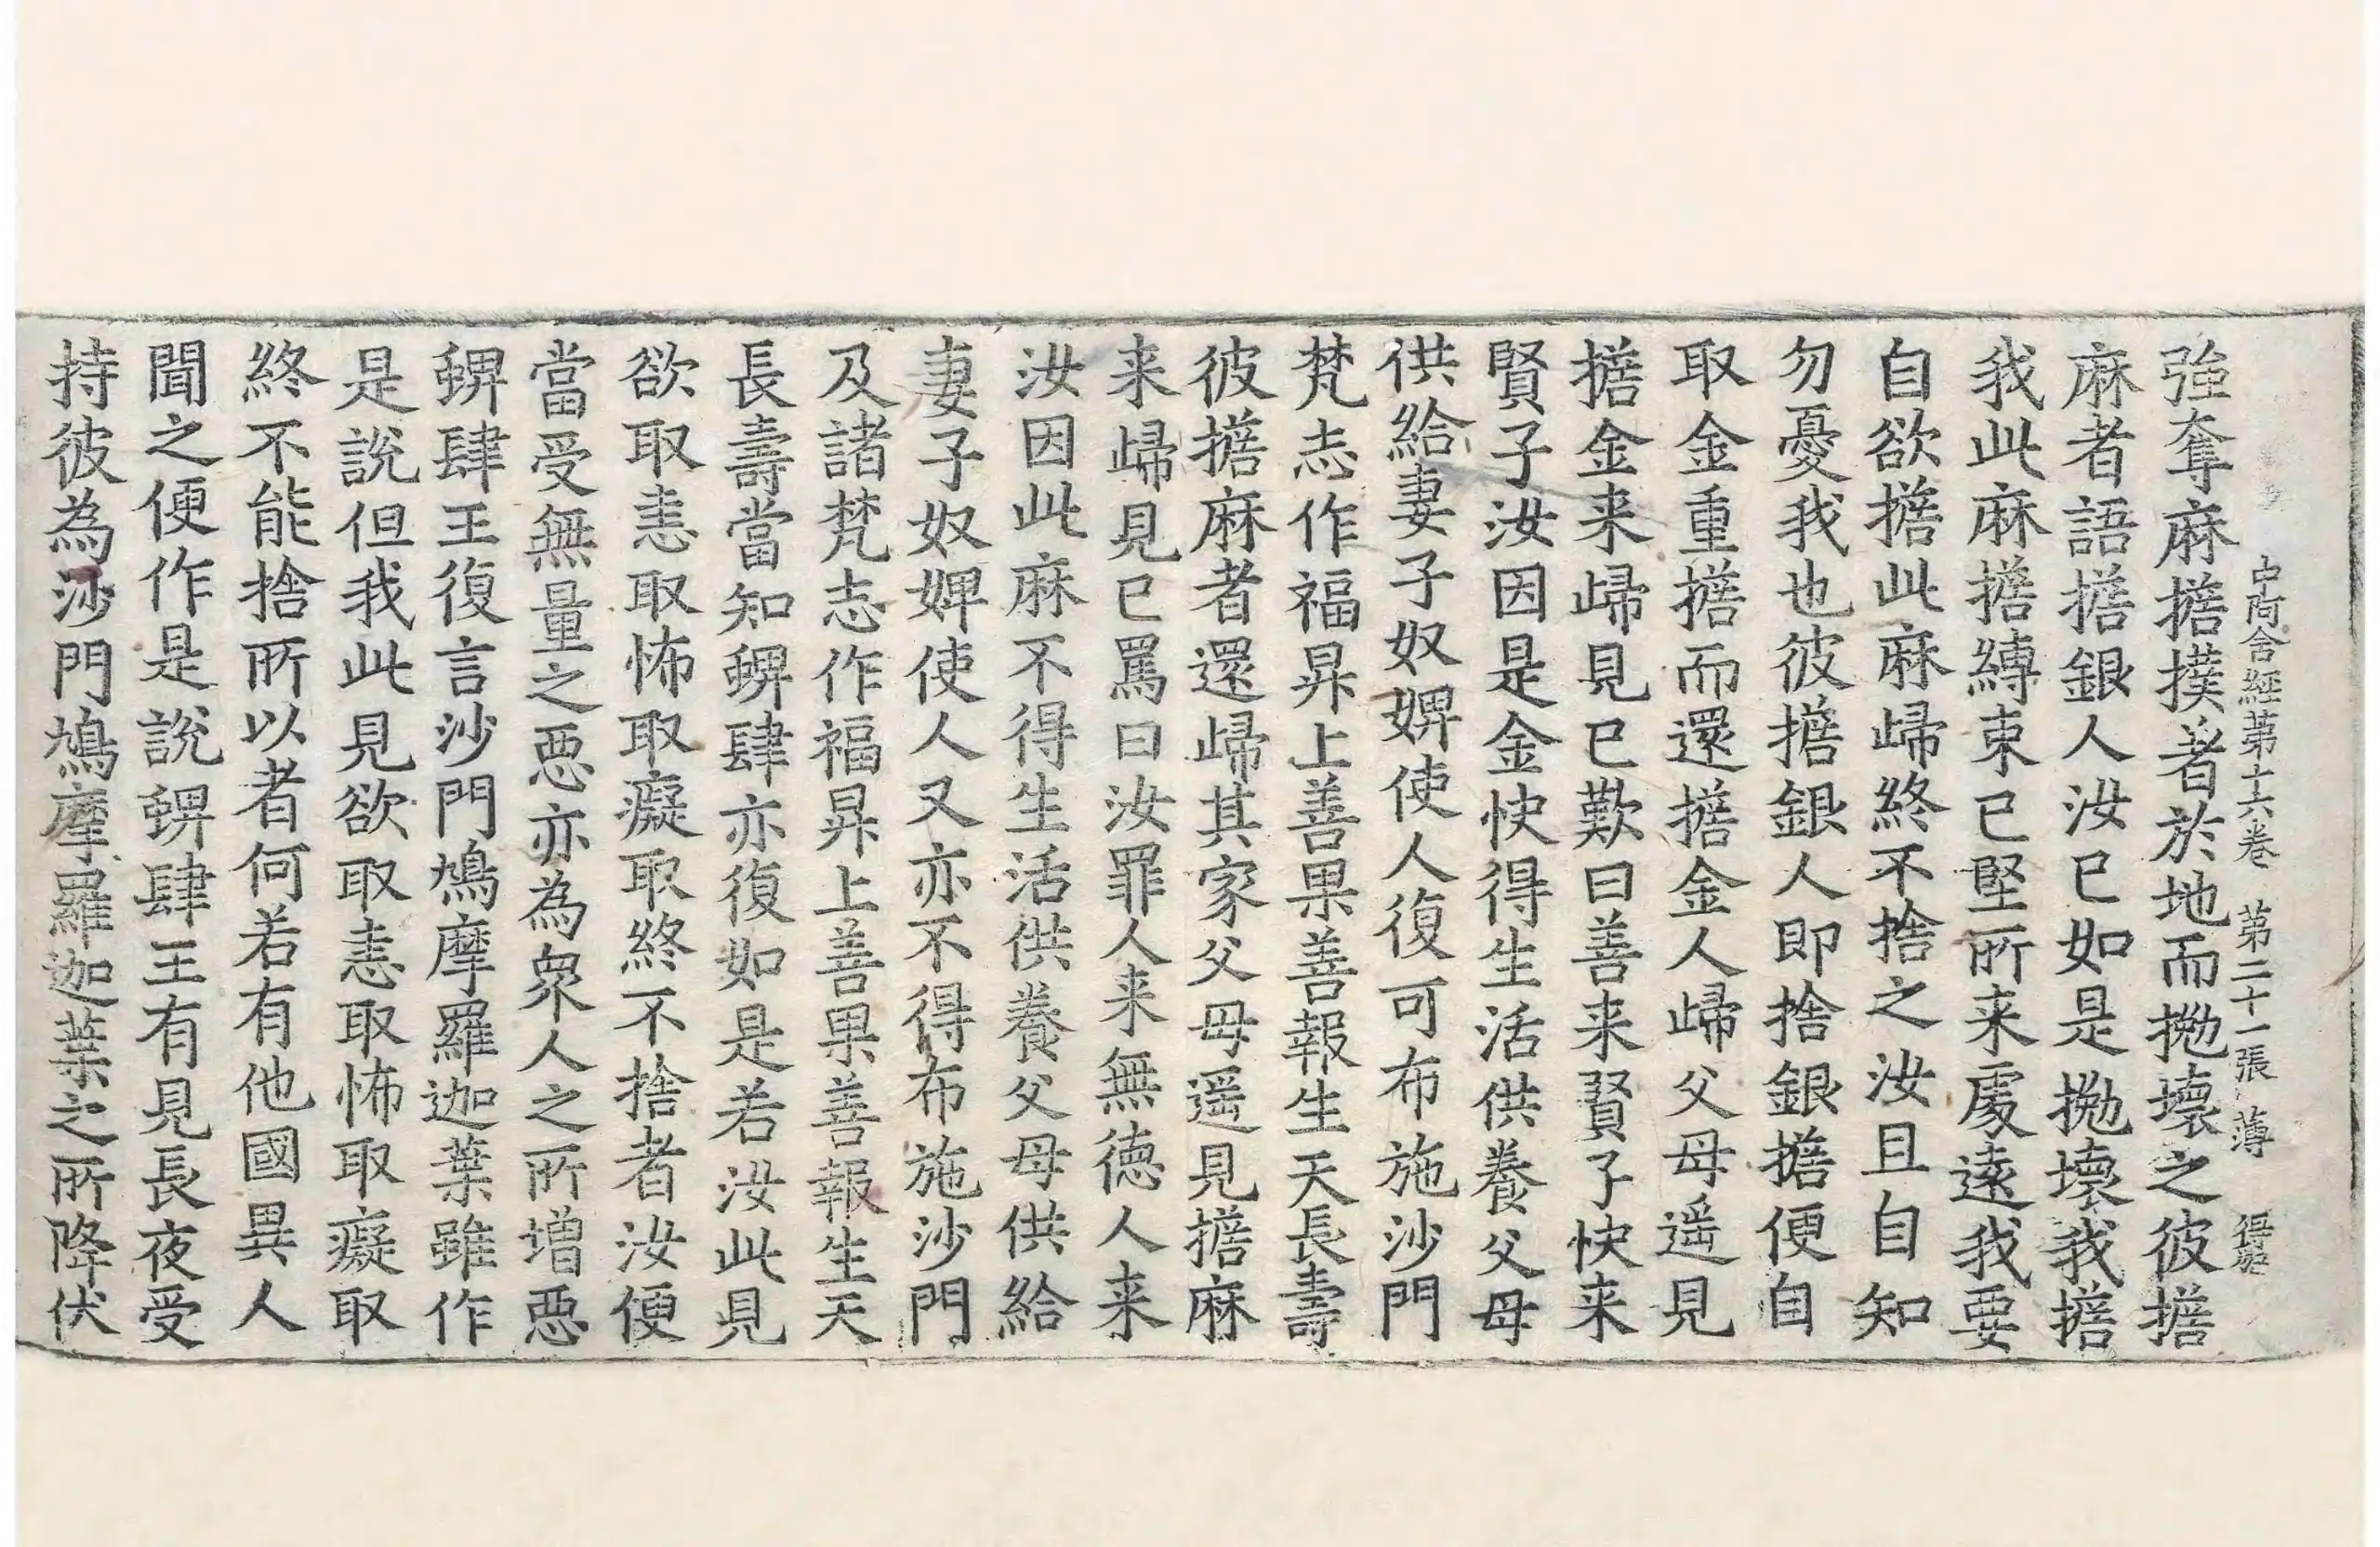 中阿含經第十六卷 第二十一張 薄
強奪麻擔撲著於地而拋壞之彼擔
麻者語擔銀人汝已如是拋壞我擔
我此麻擔縛束已堅所来處遠我要
自欲擔此麻歸終不捨之汝且自知
勿憂我也彼擔銀人即捨銀擔便自
取金重擔而還擔金人歸父母遥見
擔金来歸見已歎曰善来賢子快来
賢子汝因是金快得生活供養父母
供給妻子奴婢使人復可布施沙門
梵志作福昇上善果善報生天長壽
彼擔麻者還歸其家父母遥見擔麻
来歸見已罵曰汝罪人来無德人来
汝因此麻不得生活供養父母供給
妻子奴婢使人又亦不得布施沙門
及諸梵志作福昇上善果善報生天
長壽當知蜱肆亦復如是若汝此見
欲取恚取怖取癡取終不捨者汝便
當受無量之惡亦為衆人之所增惡
蜱肆王復言沙門鳩摩羅迦葉雖作
是說但我此見欲取恚取怖取癡取
終不能捨所以者何若有他國異人
聞之便作是說蜱肆王有見長夜受
持彼為沙門鳩摩羅迦葉之所降伏